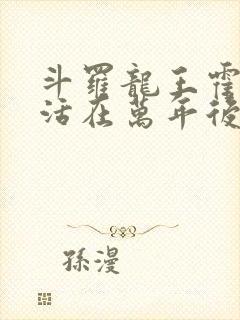 斗羅龍王霍
活在萬年後
孫漫